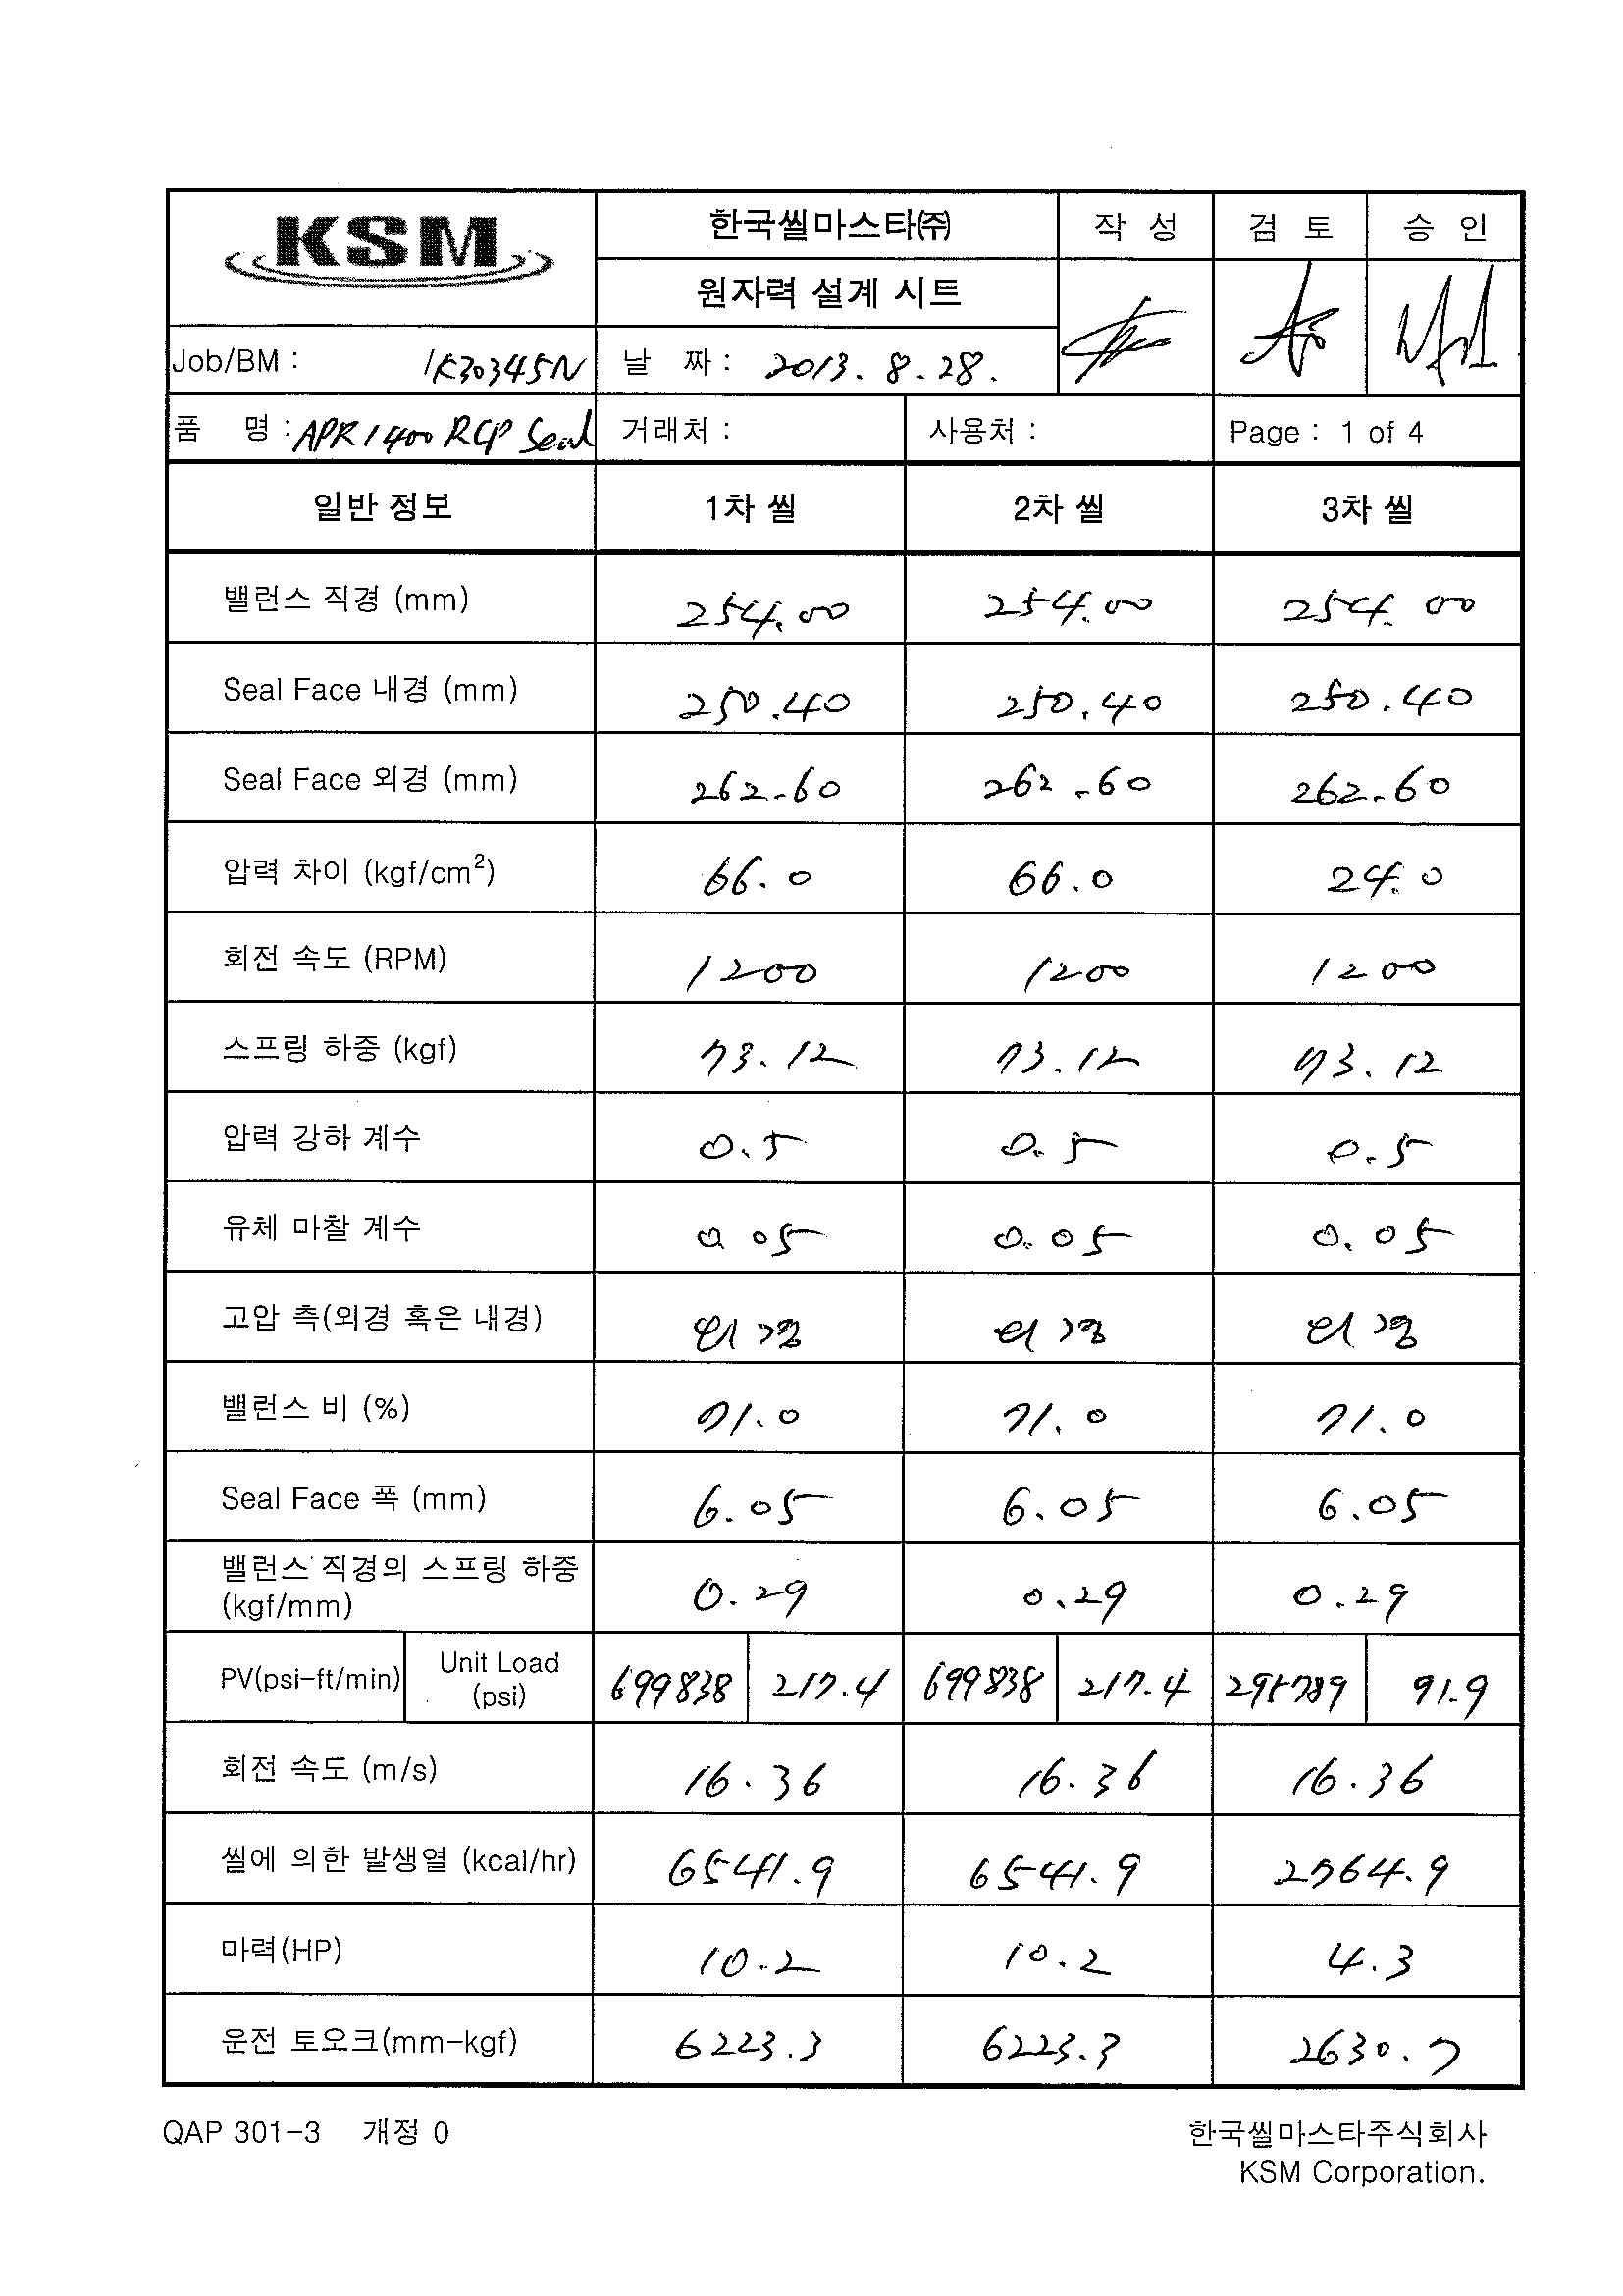 KSM
한국씰마스타㈜
작 성 검 토 승 인
원자력 설계 시트
Job/BM : 1K30345N 날 짜 : 2013. 8. 28.
품 명 : APR1400 RCP Seal 거래처 : 사용처 : Page : 1 of 4
일반 정보 1차 씰 2차 씰 3차 씰
밸런스 직경 (mm) 254.00 254.00 254.00
Seal Face 내경 (mm) 250.40 250.40 250.40
Seal Face 외경 (mm) 262.60 262.60 262.60
압력 차이 (kgf/cm²) 66.0 66.0 24.0
회전 속도 (RPM) 1200 1200 1200
스프링 하중 (kgf) 73.12 73.12 73.12
압력 강하 계수 0.5 0.5 0.5
유체 마찰 계수 0.05 0.05 0.05
고압 측(외경 혹은 내경) 외경 외경 외경
밸런스 비 (%) 71.0 71.0 71.0
Seal Face 폭 (mm) 6.05 6.05 6.05
밸런스 직경의 스프링 하중
(kgf/mm) 0.29 0.29 0.29
PV(psi-ft/min) Unit Load
(psi) 699838 217.4 699838 217.4 295789 91.9
회전 속도 (m/s) 16.36 16.36 16.36
씰에 의한 발생열 (kcal/hr) 6541.9 6541.9 2764.9
마력(HP) 10.2 10.2 4.3
운전 토오크(mm-kgf) 6223.3 6223.3 2630.7
QAP 301-3 개정 0 한국씰마스타주식회사
KSM Corporation.